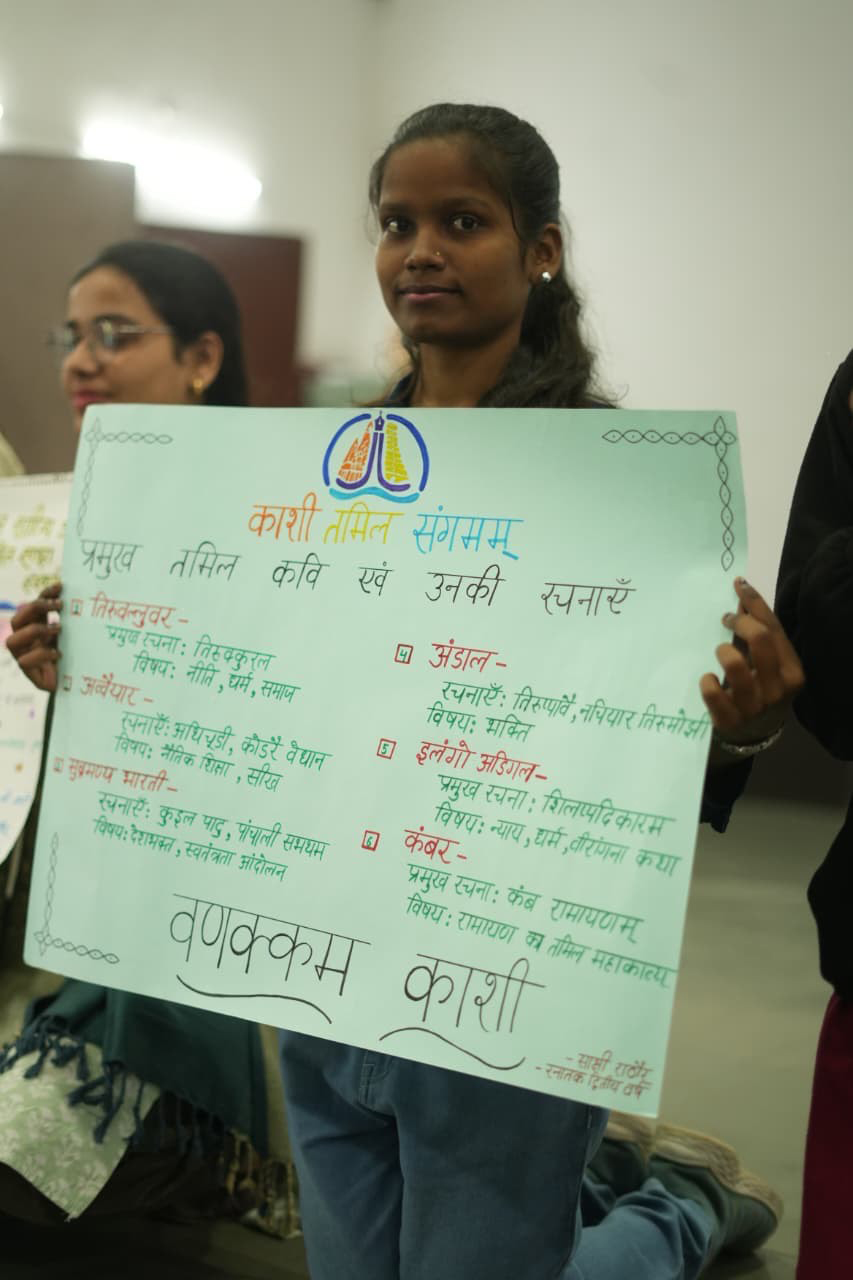 काशी तमिल संगमम्
प्रमुख तमिल कवि एवं उनकी रचनाएँ
1 तिरुवल्लुवर -
प्रमुख रचना: तिरुवकुरल
विषय: नीति, धर्म, समाज
अव्वैयार -
रचनाएँ: अथिचूडी, कोंडरै वेधान
विषय: नैतिक शिक्षा, सीख
सुब्रमण्य भारती -
रचनाएँ: कुइल पाटु, पांचाली सभथम
विषय: देशभक्त, स्वतंत्रता आंदोलन
4 अंडाल -
रचनाएँ: तिरुप्पावै, नचियार तिरुमोझी
विषय: भक्ति
5 इलंगो अडिगल -
प्रमुख रचना: शिलप्पदिकारम
विषय: न्याय, धर्म, वीरांगना कथा
6 कंबर -
प्रमुख रचना: कंब रामायणम्
विषय: रामायण का तमिल महाकाव्य
वणक्कम काशी
- साक्षी राठौर
- स्नातक द्वितीय वर्ष